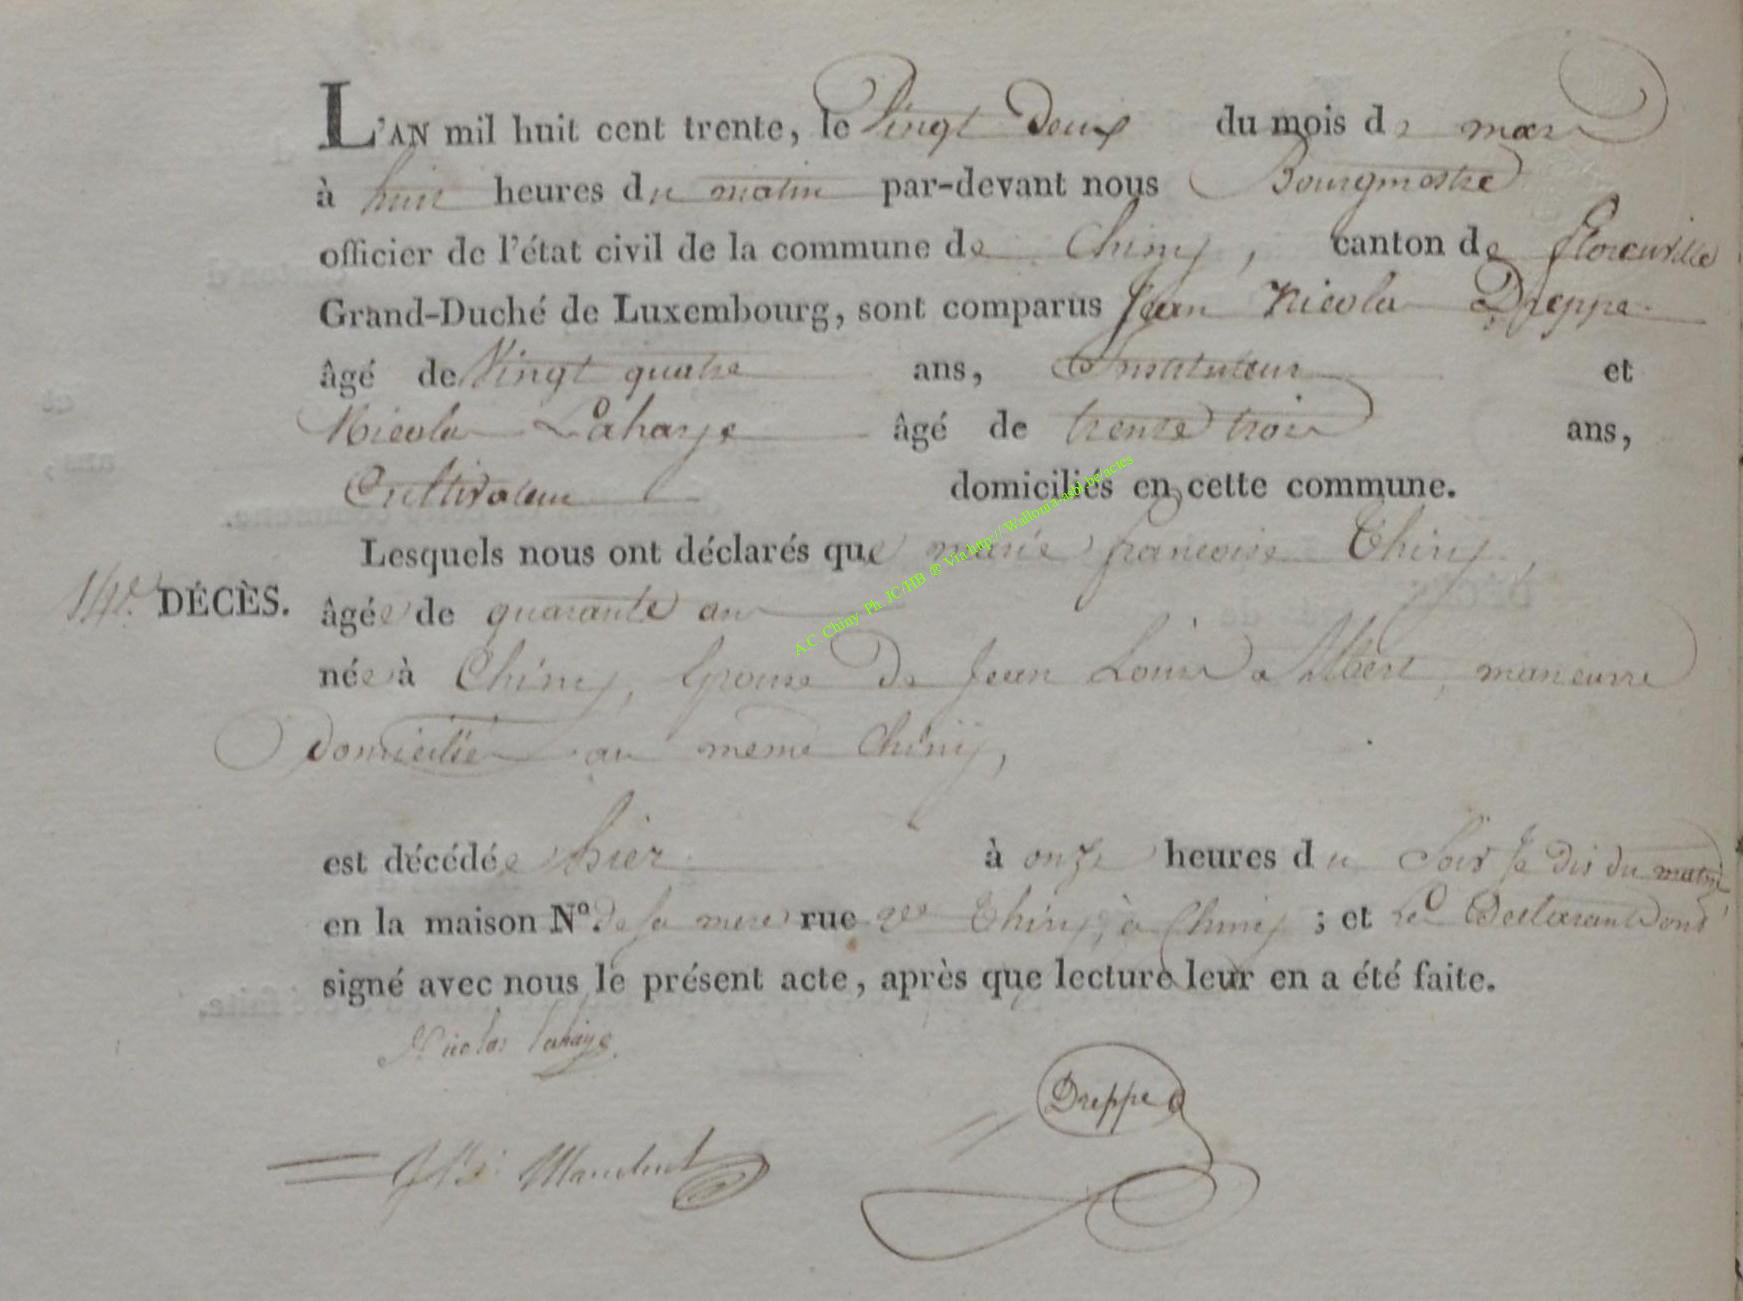 L'AN mil huit cent trente, le Vingt Deux du mois de mars
à huit heures du matin par-devant nous Bourgmestre
officier de l'état civil de la commune de Chiny, canton de florenville
Grand-Duché de Luxembourg, sont comparus Jean Nicola Dreppe
âgé de Vingt quatre ans, Instituteur et
Nicola Lahaye âgé de trente trois ans,
Cultivateur domiciliés en cette commune.
Lesquels nous ont déclarés que marie francoise Thiry,
14e. DÉCÈS. âgée de quarante ans
née à Chiny, Epouse de Jean Louis Albert, maneuvre
Domiciliée au meme Chiny,
est décédée hier à onze heures du Soir Je dis du matin
en la maison No. de sa mere rue Thiry, à Chiny ; et Les Declarants ont
signé avec nous le présent acte, après que lecture leur en a été faite.
Nicolas Lahaye
Dreppe
A.C Chiny Ph JC/HB ® Via http://Wallonia-asbl.be/actes